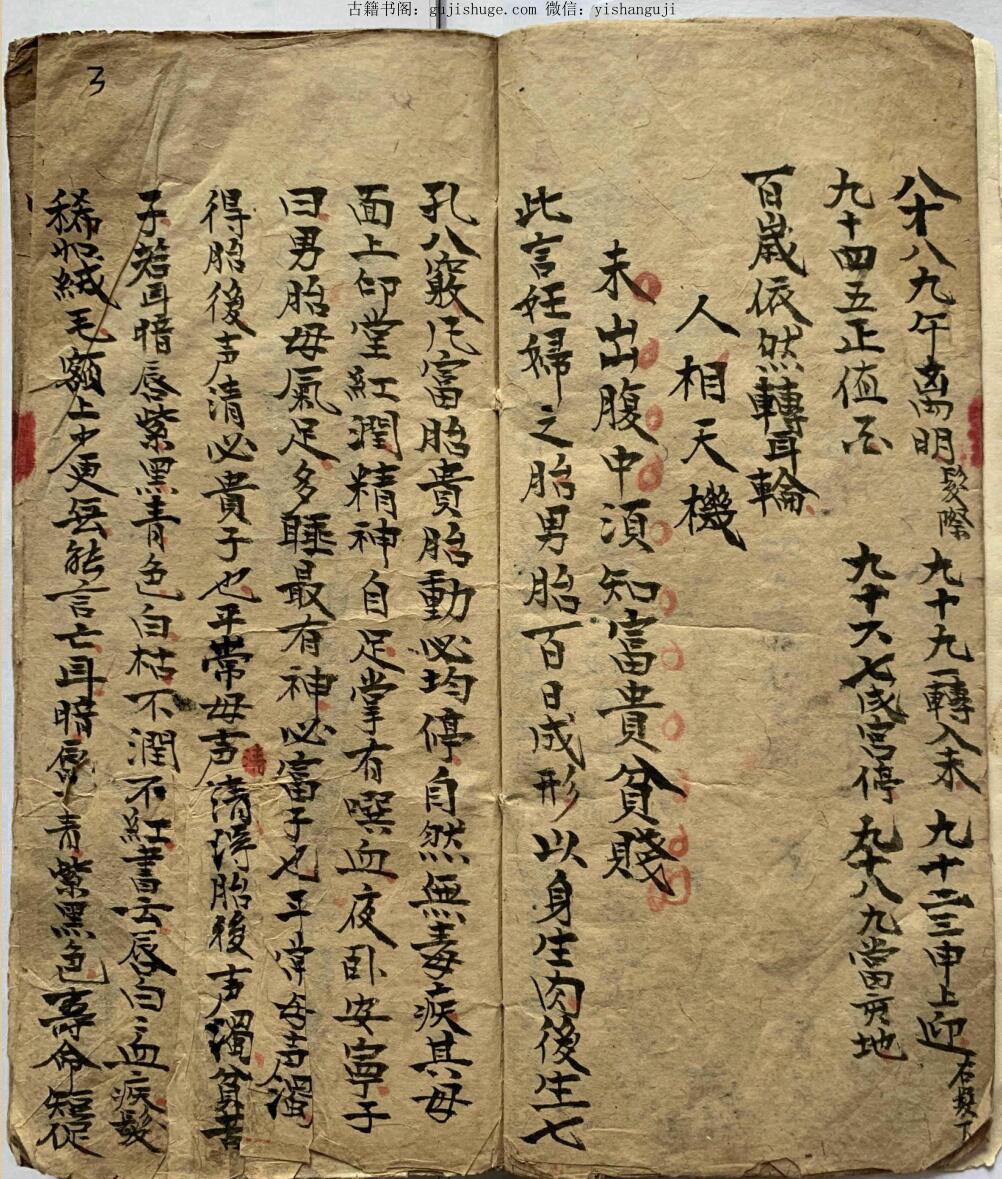 古籍书阁：gujishuge.com 微信：yishanguji
八十八九午离明髮際 九十九一轉入未 九十二三申上迎
九十四五正值酉 九十六七戌宫停 九十八九當亥地
百嵗依然轉耳輪
人相天機
未出腹中須知富貴貧賤
此言妊婦之胎男胎百日成形以身生肉後生七
孔八竅凡富胎貴胎動必均停自然無毒疾其母
面上印堂紅潤精神自足掌有噀血夜卧安寧子
曰男胎母氣足多睡最有神必富子也平常母声濁
得胎後声清必貴子也平常母声清淂胎後声濁貧苦
子若耳暗唇紫黑青色白枯不潤不紅書云唇白血疾髮
稀如絨毛額上少更無能言亡耳暗唇青紫黑色壽命短促
3